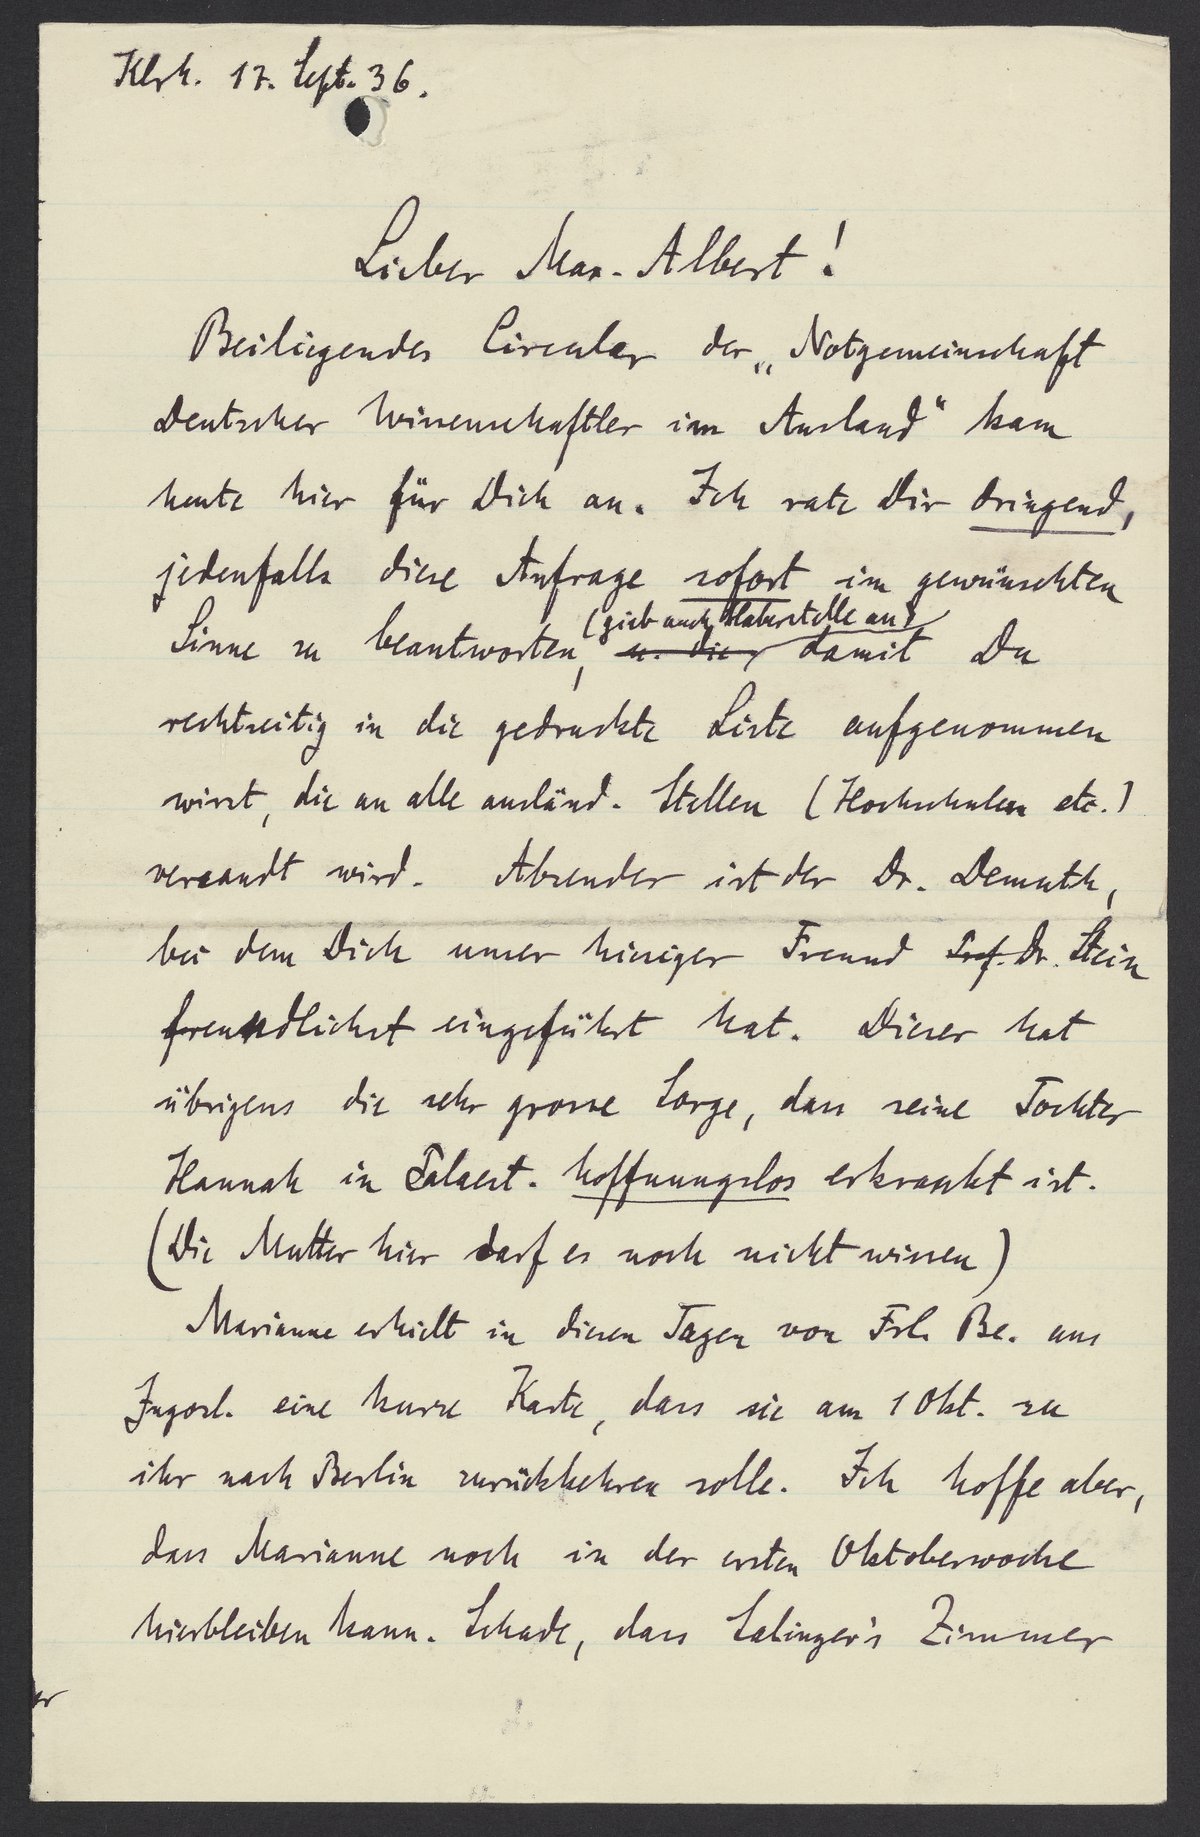 Klrh. 17. Sept. 36.
Lieber Max-Albert!
Beiliegendes Circular der „Notgemeinschaft
Deutscher Wissenschaftler im Ausland" kam
heute hier für Dich an. Ich rate Dir dringend,
jedenfalls diese Anfrage sofort im gewünschten
(gieb auch Haberstelle an)
Sinne zu beantworten, u. die damit Du
rechtzeitig in die gedruckte Liste aufgenommen
wirst, die an alle ausländ. Stellen (Hochschulen etc.)
versandt wird. Absender ist der Dr. Demuth,
bei dem Dich unser hiesiger Freund Prof. Dr. Stein
freundlichst eingeführt hat. Dieser hat
übrigens die sehr grosse Sorge, dass seine Tochter
Hannah in Palaest. hoffnungslos erkrankt ist.
(Die Mutter hier darf es noch nicht wissen)
Marianne erhielt in diesen Tagen von Frl. Be. aus
Jugosl. eine kurze Karte, dass sie am 1 Okt. zu
ihr nach Berlin zurückkehren solle. Ich hoffe aber,
dass Marianne noch in der ersten Oktoberwoche
hierbleiben kann. Schade, dass Salinger's Zimmer